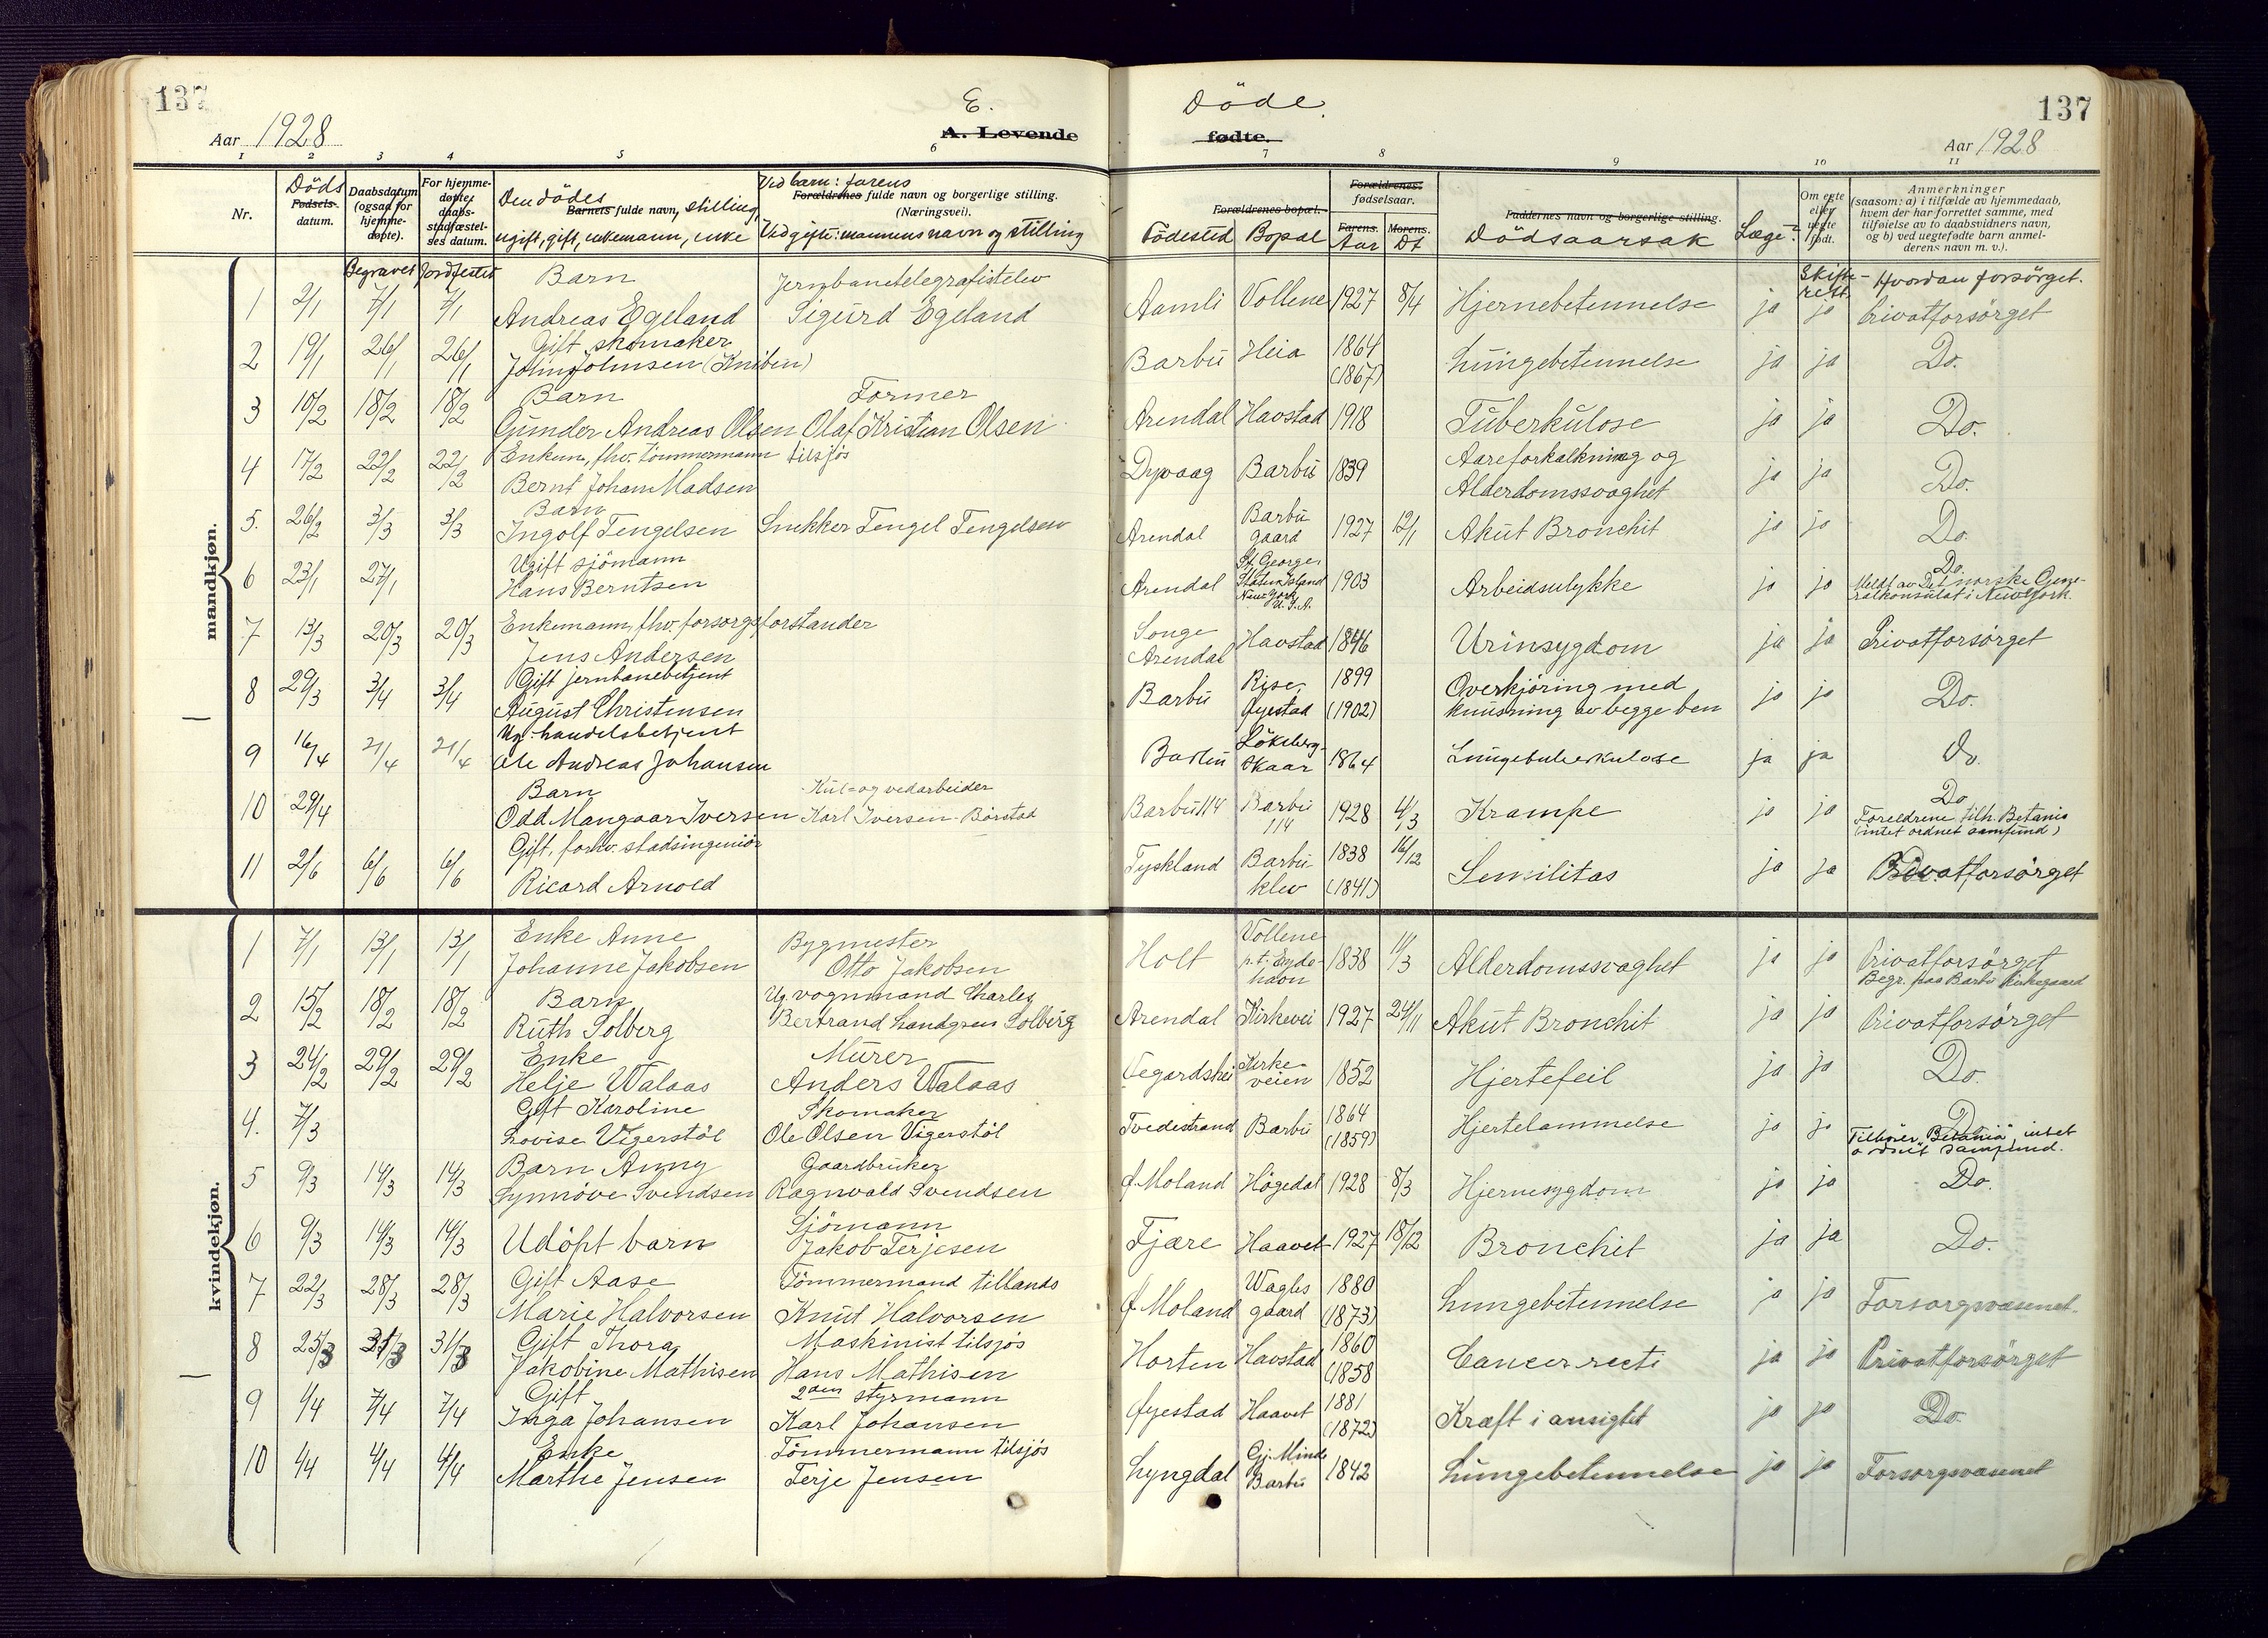 137
Aar 1928
E.
A. Levende
Døde.
fødte.
137
Aar 1928
1 2 3 4 5 6 7 8 9 10 11
Nr.
Døds
Fødsels-
datum.
Daabsdatum
(ogsaa for
hjemme-
døpte).
For hjemme-
døpte:
daabs-
stadfæstel-
ses datum.
Den dødes
Barnets fulde navn, stilling,
ugift, gift, enkemann, enke
Ved barn: farens
Forældrenes fulde navn og borgerlige stilling.
(Næringsvei).
Ved gifte: mannens navn og stilling
Forældrenes bopæl.
Fødested Bopæl
Forældrenes
fødselsaar.
Farens. Morens.
Aar Dt
Faddernes navn og borgerlige stilling.
Dødsaarsak
Læge?
Om egte
eller
uegte
født.
Anmerkninger
(saasom: a) i tilfælde av hjemmedaab,
hvem der har forrettet samme, med
tilføielse av to daabsvidners navn,
og b) ved uegtefødte barn anmel-
derens navn m. v.).
Begravet Jordfestet
Skifte-
rett
Hvordan forsørget.
mandkjøn.
Barn Jernbanetelegrafistelev
1 2/1 7/1 7/1 Andreas Egeland Sigurd Egeland Aamli Vollene 1927 8/4 Hjernebetennelse ja ja Privatforsørget
Gift skomaker
2 19/1 26/1 26/1 John Johnsen (Kniben) Barbu Heia 1864 (1867) Lungebetennelse ja ja Do.
Barn Former
3 10/2 18/2 18/2 Gunder Andreas Olsen Olaf Kristian Olsen Arendal Havstad 1918 Tuberkulose ja ja Do.
Enkem., fhv. tømmermann tilsjøs
4 17/2 22/2 22/2 Bernt Johan Madsen Dypvaag Barbu 1839 Aareforkalkning og
Alderdomssvaghet ja ja Do.
Barn
5. 26/2 3/3 3/3 Ingolf Tengelsen Snekker Tengel Tengelsen Arendal Barbu
gaard 1927 12/1 Akut Bronchit ja ja Do.
Ugift sjømann
6 23/1 27/1 Hans Berntsen Arendal St. George,
Staten Island
New York
U.S.A. 1903 Arbeidsulykke ja ja Do.
Meldt av Det norske Gene-
ralkonsulat i New York.
Enkemann, fhv. forsorgsforstander
7 13/3 20/3 20/3 Jens Andersen Songe
Arendal Havstad 1846 Urinsygdom ja ja Privatforsørget
Gift jernbanebetjent
8 29/3 3/4 3/4 August Christensen Barbu Rise,
Øyestad 1899 (1902) Overkjøring med
knusning av begge ben ja ja Do.
Ug. handelsbetjent
9 16/4 21/4 21/4 Ole Andreas Johansen Barbu Løkeberg-
skaar 1864 Lungetuberkulose ja ja Do.
Barn Kul- og vedarbeider
10 29/4 Odd Mangaar Iversen Karl Iversen Børstad Barbu 114 Barbu
114 1928 4/3 Krampe ja ja Do
Foreldrene tilh. Betania
(intet ordnet samfund)
Gift, forhv. stadsingeniør
11 2/6 6/6 6/6 Ricard Arnold Tyskland Barbu-
klev 1838 (1841) 16/12 Senilitas ja ja Privatforsørget
kvindekjøn.
Enke Anne Bygmester
1 7/1 13/1 13/1 Johanne Jakobsen Otto Jakobsen Holt Vollene
p.t. Eyde-
havn 1838 11/3 Alderdomssvaghet ja ja Privatforsørget
Begr. paa Barbu Kirkegaard
Barn Ug. vognmand Charles
2 15/2 18/2 18/2 Ruth Solberg Bertrand Landgren Solberg Arendal Kirkevei 1927 24/11 Akut Bronchit ja ja Privatforsørget
Enke Murer
3 24/2 29/2 29/2 Helje Walaas Anders Walaas Vegardshei Kirke-
veien 1852 Hjertefeil ja ja Do.
Gift Karoline Skomaker
4. 7/3 Lovise Vigerstøl Ole Olsen Vigerstøl Tvedestrand Barbu 1864 (1859) Hjertelammelse ja ja Do
Tilhører "Betania", intet
ordnet samfund.
Barn Anny Gaardbruker
5 9/3 14/3 14/3 Synnøve Svendsen Ragnvald Svendsen Ø. Moland Høgedal 1928 8/3 Hjernesygdom ja ja Do.
Sjømann
6 9/3 14/3 14/3 Udøpt barn Jakob Terjesen Fjære Haavet 1927 18/12 Bronchit ja ja Do.
Gift Aase Tømmermand tillands
7 22/3 28/3 28/3 Marie Halvorsen Knut Halvorsen Ø. Moland Wagles
gaard 1880 (1873) Lungebetennelse ja ja Forsorgsvæsenet
Gift Thora Maskinist tilsjøs
8 25/3 31/3 31/3 Jakobine Mathisen Hans Mathisen Horten Havstad 1860 (1858 Cancer recti ja ja Privatforsørget
Gift 2den styrmann
9 1/4 7/4 7/4 Inga Johansen Karl Johansen Øyestad Haavet 1881 (1872) Kræft i ansigtet ja ja Do.
Enke Tømmermann tilsjøs
10 1/4 4/4 4/4 Marthe Jensen Terje Jensen Lyngdal Gj. Minde
Barbu 1842 Lungebetennelse ja ja Forsorgsvæsenet